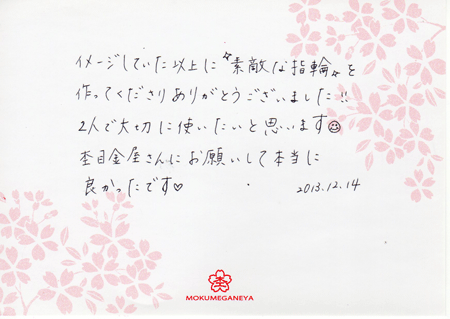 イメージしていた以上に“素敵な指輪”を
作ってくださりありがとうございました!!
2人で大切に使いたいと思います☺
杢目金屋さんにお願いして本当に
良かったです♡
2013.12.14
杢
MOKUMEGANEYA